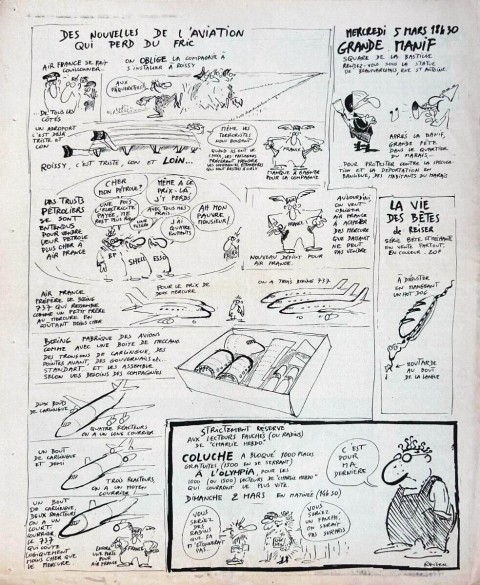 DES NOUVELLES DE L'AVIATION
QUI PERD DU FRIC
AIR FRANCE SE FAIT
COUILLONNER...
... DE TOUS LES
CÔTÉS
ON OBLIGE LA COMPAGNIE À
S'INSTALLER À ROISSY
AUX
PÂQUERETTES!
UN AÉROPORT
C'EST DÉJÀ
TRISTE ET
CON
ROISSY, C'EST TRISTE, CON ET LOIN...
MÊME LES
TERRORISTES
NOUS BOUDENT
QUAND ILS ONT LE
CHOIX, LES PASSAGERS
PRÉFÈRENT PRENDRE
LES COMPAGNIES ÉTRANGÈRES
QUI SONT RESTÉES À ORLY
FRANCE
MANQUE À GAGNER
POUR LA COMPAGNIE
DES TRUSTS
PÉTROLIERS
SE SONT
ENTENDUS
POUR VENDRE
LEUR PÉTROLE
PLUS CHER À
AIR FRANCE
CHER
MON PÉTROLE?
UNE FOIS
L'ÉLECTRICITÉ
PAYÉE, ME
RESTE PLUS RIEN
MÊME À CE
PRIX-LÀ
J'Y PERDS
AVEC TOUS MES
FRAIS
J'AI
QUATRE
ENFANTS
AH MON
PAUVRE
MONSIEUR!
BP
SHELL
ESSO
FRANCE
NOUVEAU DÉFICIT POUR
AIR FRANCE.
AUJOURD'HUI
ON VEUT
OBLIGER
AIR FRANCE
À ACHETER
DES MERCURE
QUE DASSAULT
NE PEUT
PAS VENDRE
AIR FRANCE
PRÉFÈRE LE BOEING
737 QUI RESSEMBLE
COMME UN PETIT FRÈRE
AU MERCURE EN
COÛTANT MOINS CHER
POUR LE PRIX DE
DEUX MERCURE
ON A TROIS BOEING 737
BOEING FABRIQUE DES AVIONS
COMME AVEC UNE BOITE DE MECCANO
DES TRONÇONS DE CARLINGUE, DES
POINTES AVANT, DES GOUVERNAILS etc...
STANDART. ET LES ASSEMBLE
SELON LES BESOINS DES COMPAGNIES
DEUX BOUTS
DE CARLINGUE
QUATRE RÉACTEURS
ON A UN LONG COURRIER
UN BOUT
DE CARLINGUE
ET DEMI
TROIS RÉACTEURS
ON A UN MOYEN
COURRIER!
UN BOUT
DE CARLINGUE,
DEUX RÉACTEURS
ON A UN
COURT
COURRIER
LE 737
QUI COÛTE
LOGIQUEMENT
MOINS CHER QUE
LE MERCURE
FRANCE
MERCREDI 5 MARS 18h30
GRANDE MANIF
SQUARE DE LA BASTILLE
RENDEZ-VOUS SOUS LA STATUE
DE BEAUMARCHAIS RUE ST ANTOINE
APRÈS LA MANIF,
GRANDE FÊTE
DANS LE QUARTIER
DU MARAIS...
...POUR PROTESTER CONTRE LA SPÉCULATION
ET LA DÉPORTATION EN
BANLIEUE, DES HABITANTS DU MARAIS
LA VIE
DES BÊTES
de REISER
SÉRIE BÊTE ET MÉCHANTE
EN VENTE PARTOUT.
EN COULEUR. 20F
À DÉGUSTER
EN MANGEANT
UN HOT DOG
MOUTARDE
AU BOUT
DE LA LANGUE
STRICTEMENT RÉSERVÉ
AUX LECTEURS FAUCHÉS (OU RADINS)
DE "CHARLIE HEBDO"
COLUCHE A BLOQUÉ 1000 PLACES
GRATUITES (1500 EN SE SERRANT)
À L'OLYMPIA POUR LES
1000 (OU 1500) LECTEURS DE "CHARLIE HEBDO"
QUI COURRONT LE PLUS VITE
DIMANCHE 2 MARS EN MATINÉE (14h30)
VOUS
SERIEZ
DES
RADINS
QUE ÇA
M'ÉTONNERAIT
PAS
VOUS
SERIEZ
UN FAUCHÉ,
ON SERAIT
PAS SURPRIS
C'EST
POUR
MA
DERNIÈRE
REISER